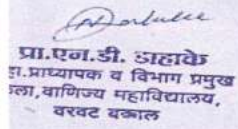 प्रा.एन.डी. डाहाके
प्राध्यापक व विभाग प्रमुख
कला,वाणिज्य महाविद्यालय,
वरवट बकाल